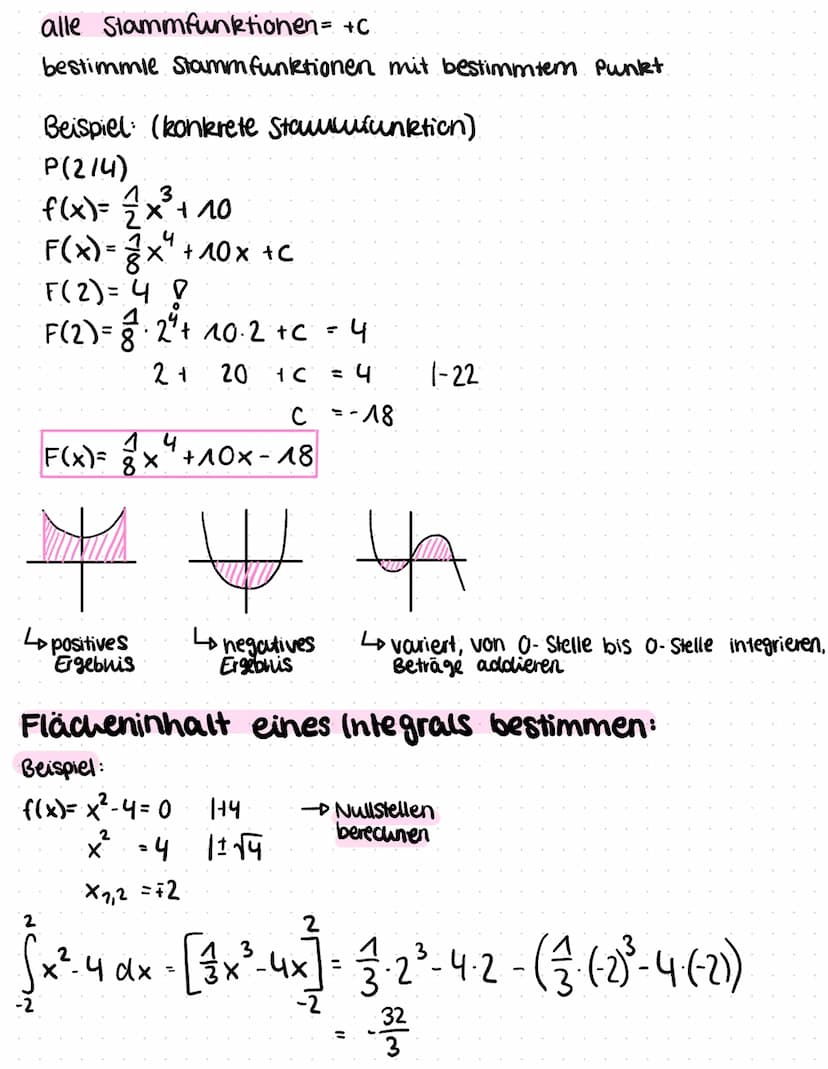 alle Stammfunktionen = +C
bestimmte Stammfunktionen mit bestimmtem Punkt
Beispiel: (konkrete Stammfunktion)
P(2/4)
f(x)= 1/2 x³ + 10
F(x)= 1/8 x⁴ + 10x + C
F(2)= 4 !
F(2)= 1/8 · 2⁴ + 10·2 + C = 4
2 + 20 + C = 4 |-22
C = -18
F(x)= 1/8 x⁴ + 10x - 18
↳ positives Ergebnis
↳ negatives Ergebnis
↳ variiert, von 0-Stelle bis 0-Stelle integrieren, Beträge addieren
Flächeninhalt eines Integrals bestimmen:
Beispiel:
f(x)= x²-4 = 0 |+4 → Nullstellen berechnen
x² = 4 |±√4
x₁,₂ = ±2
∫₋₂² x²-4 dx = [1/3 x³ - 4x]₋₂² = 1/3 · 2³ - 4·2 - (1/3 · (-2)³ - 4·(-2))
= -32/3